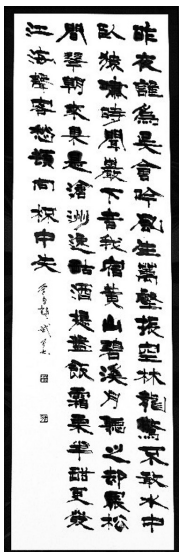 昨夜誰為吳會吟風生萬壑振空林龍驚不敢水中
臥猿嘯時聞巖下音我宿黃山碧溪月聽之却罷松
間琴朝來果是滄洲逸酤酒提盤飯霜栗半酣更發
江海聲客愁頓向杯中失